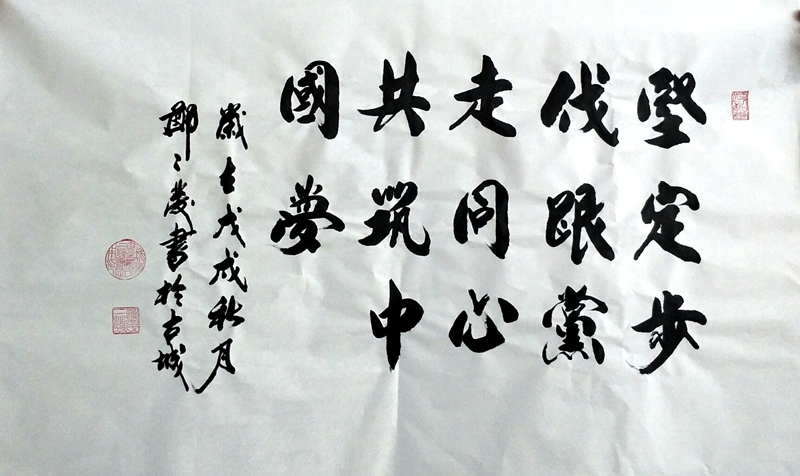 堅定步
伐跟黨
走同心
共筑中
國夢
歲在戊戌秋月
鄭 慶書於古城